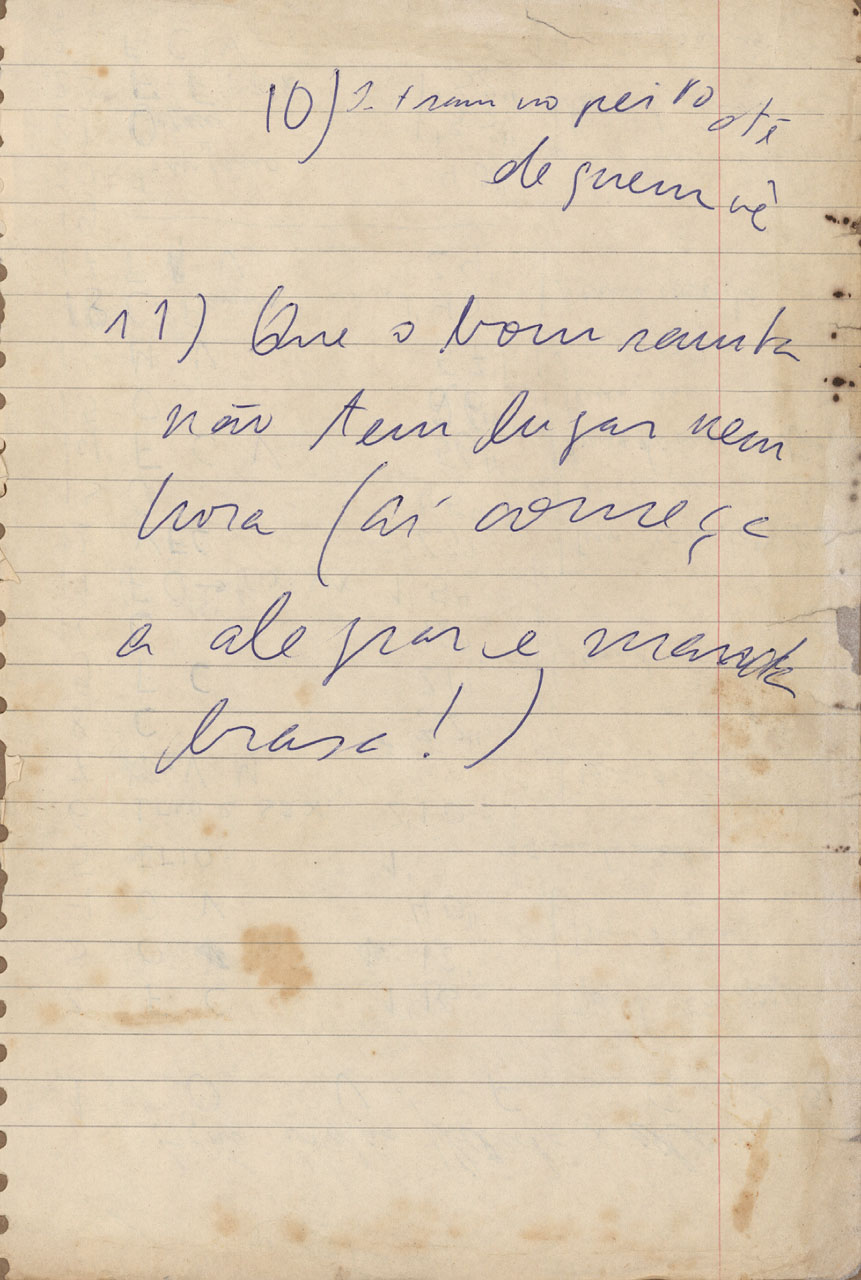 10) no peito até
de quem vê
11) Que o bom samba
não tem lugar nem
hora (aí começa
a alegrar e manda
brasa!)